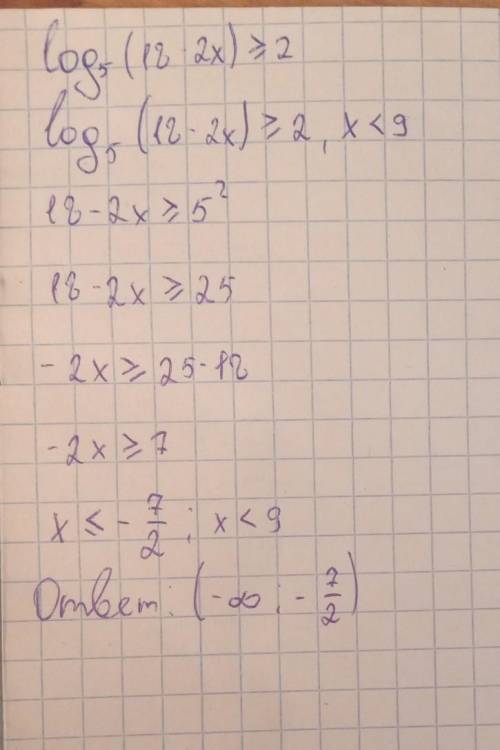 log₅(18-2x)≥2
log₅(18-2x)≥2, x<9
18-2x≥5²
18-2x≥25
-2x≥25-18
-2x≥7
x≤-7/2; x<9
Ответ: (-∞; -7/2)